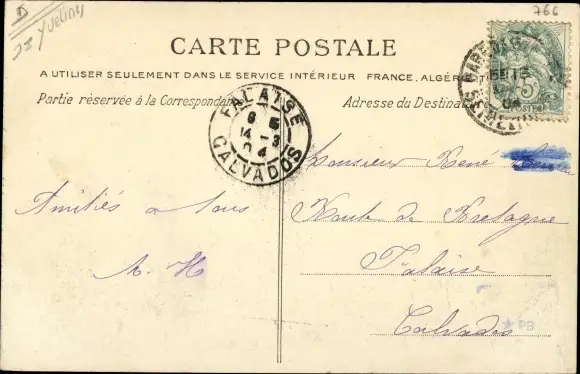 766
D
Yvelines
CARTE POSTALE
A UTILISER SEULEMENT DANS LE SERVICE INTÉRIEUR FRANCE, ALGÉRIE
Partie réservée à la Correspondance
Adresse du Destinat
FALAISE
6 5
14 -3
04
CALVADOS
POSTES
Monsieur René
Route de Bretagne
Falaise
Calvados
Amitiés a tous
A. H
PB